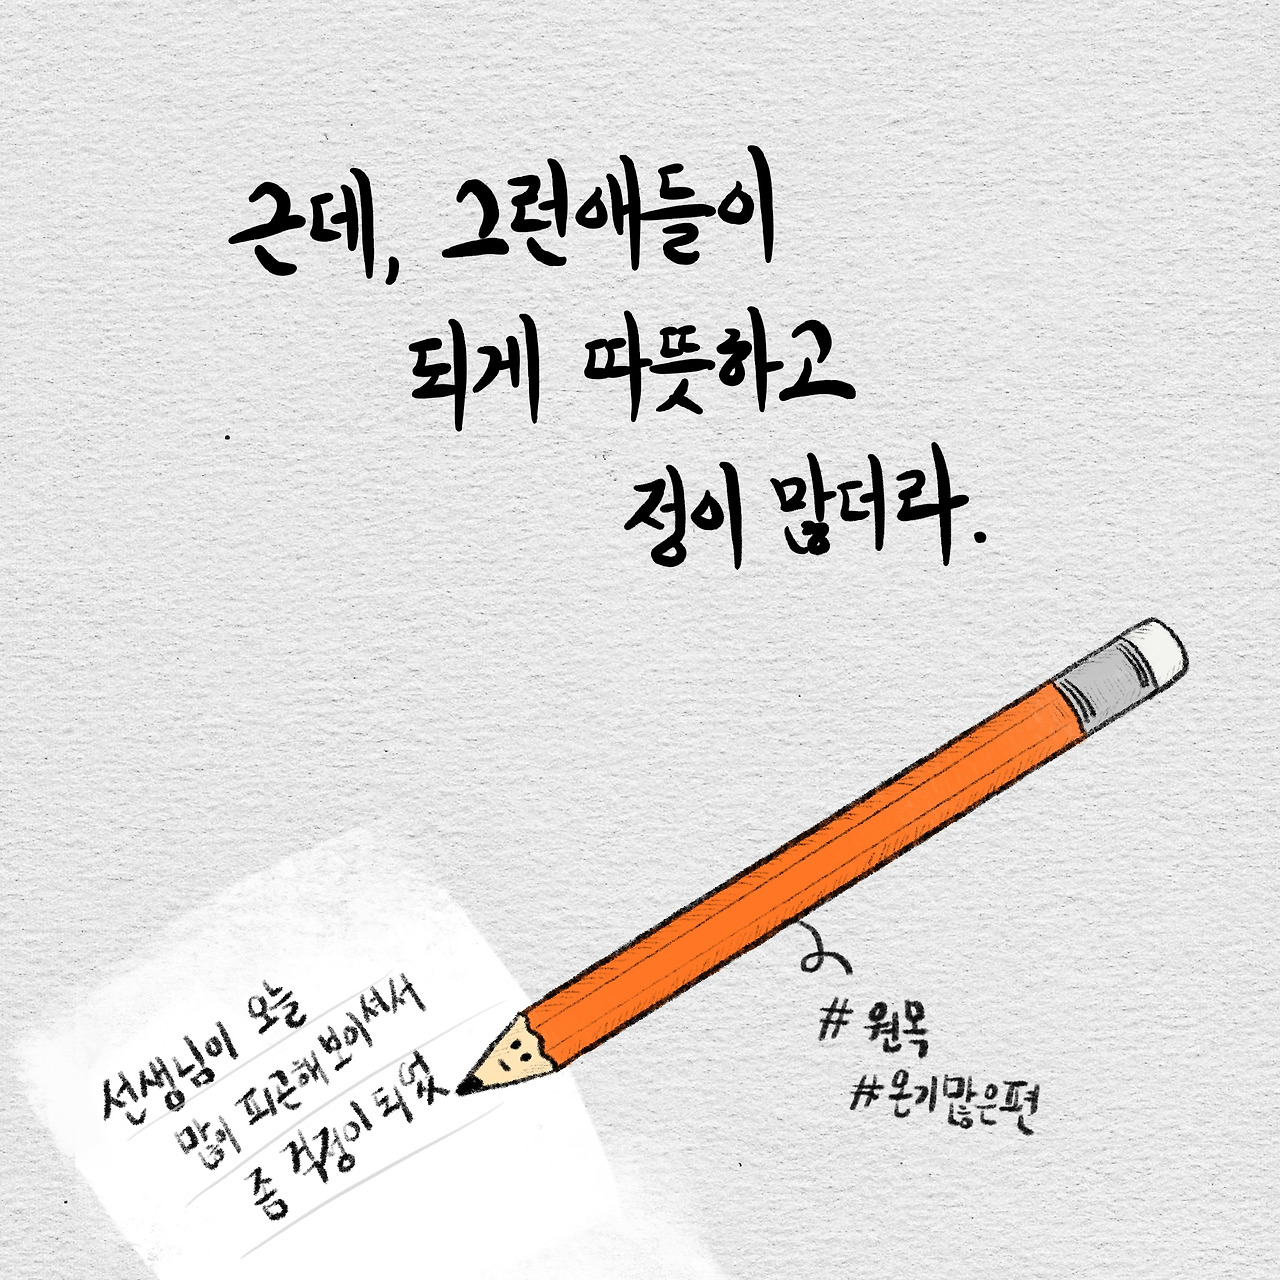 근데, 그런애들이
되게 따뜻하고
정이 많더라.
선생님이 오늘
많이 피곤해보이셔서
좀 걱정이 되었
# 원목
#온기많은편